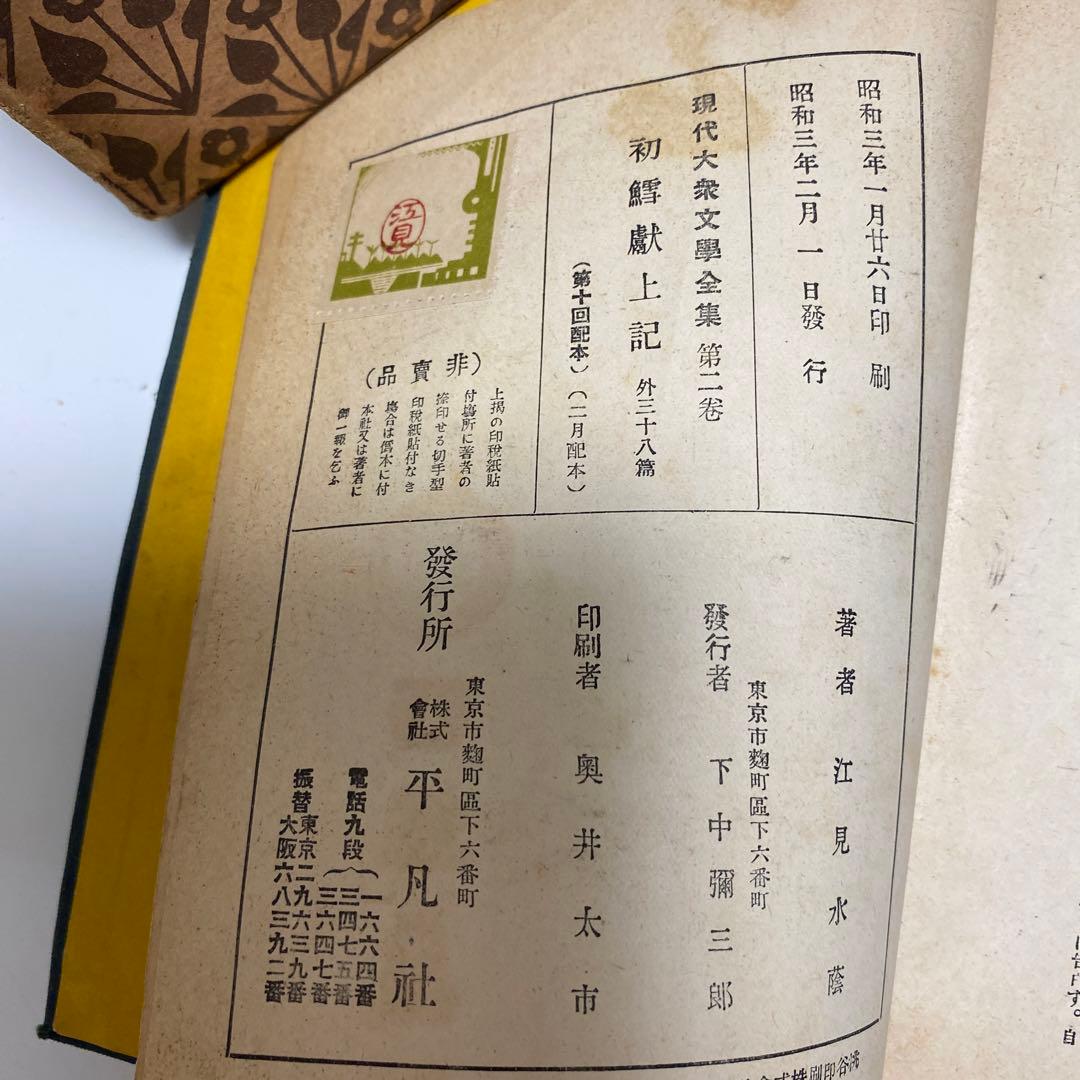 昭和三年一月廿六日印刷
昭和三年二月一日發行
現代大衆文學全集 第二卷
初鱈獻上記 外三十八篇
（第十回配本）（二月配本）
江見
（非賣品）
上揭の印稅紙貼
付塲所に著者の
捺印せる切手型
印稅紙貼付なき
塲合は倂本に付
本社又は著者に
御一報を乞ふ
著者 江見水蔭
東京市麴町區下六番町
發行者 下中彌三郎
印刷者 奧井太市
東京市麴町區下六番町
發行所 株式會社 平凡社
電話九段
一六六四番
三四七五番
三六四七番
振替東京二九六三九番
大阪六八三九二番